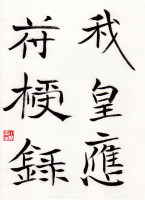 我皇應
符梗錄